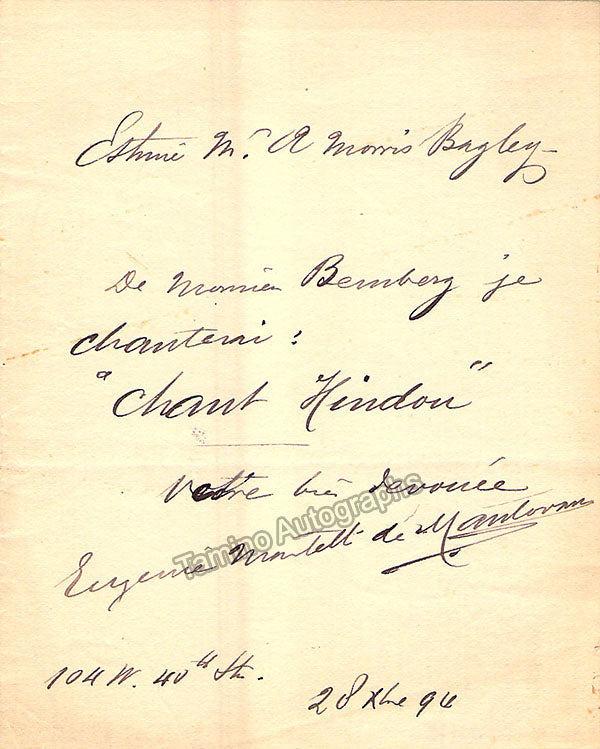 Estimé Mr. A Morris Bagley
De Monsieu Bemberg je
chanterai :
"Chant Hindou"
Votre bien dévouée
Eugenie Mantelli de Mantovani
Tamino Autographs
104 W. 40th Str.
28 Xbre 94